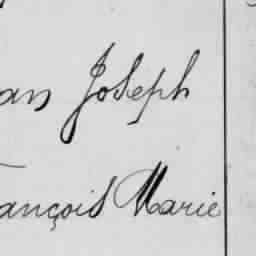 an Joseph
ançois Marie